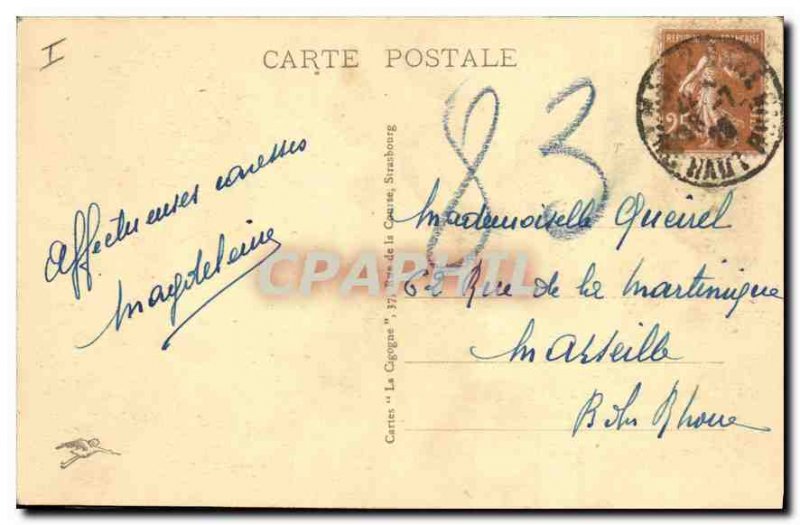 I
CARTE POSTALE
RÉPUBLIQUE FRANÇAISE
83
Affectueuses caresses
Magdeleine
Mademoiselle Queirel
62 Rue de la Martinique
Marseille
B. du Rhône
Cartes "La Cigogne", 37, Rue de la Course, Strasbourg
CPAPHIL